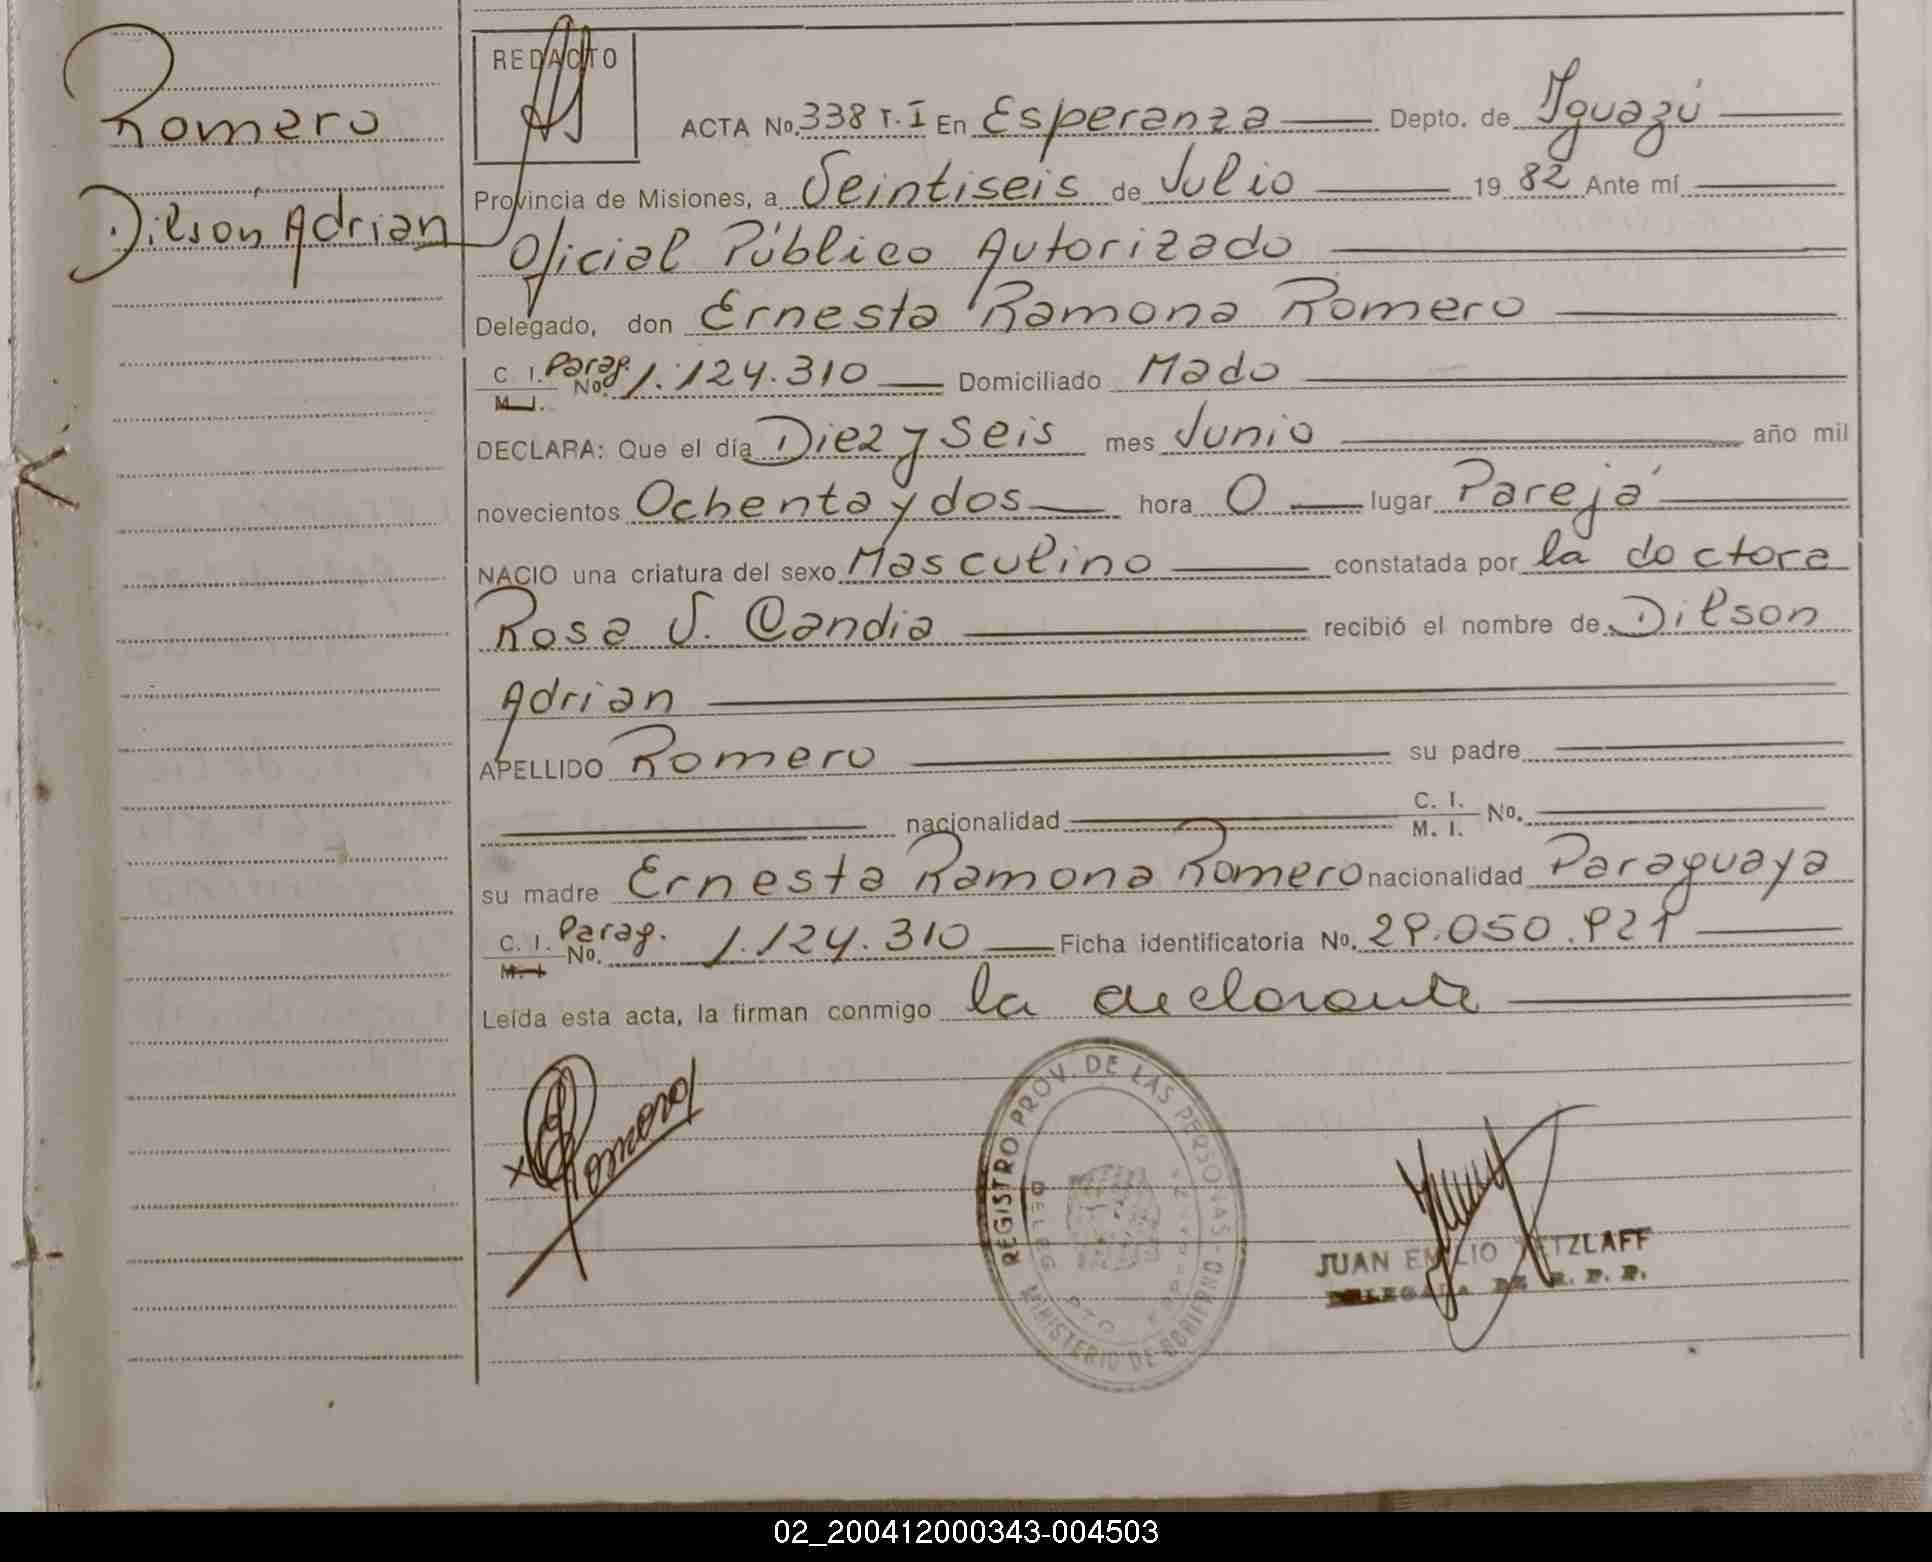 Romero
Dilson Adrian
REDACTO
ACTA No. 338 T. I En Esperanza Depto. de Iguazú
Provincia de Misiones, a Veintiseis de Julio 19 82 Ante mí
Oficial Público Autorizado
Delegado, don Ernesta Ramona Romero
C. I. Parag.
M. I. No. 1.124.310 Domiciliado Mado
DECLARA: Que el día Diez y Seis mes Junio año mil
novecientos Ochenta y dos hora 0 lugar Parejá
NACIO una criatura del sexo Masculino constatada por la doctora
Rosa V. Candia recibió el nombre de Dilson
Adrian
APELLIDO Romero su padre
nacionalidad C. I. M. I. No.
su madre Ernesta Ramona Romero nacionalidad Paraguaya
C. I. Parag.
M. I. No. 1.124.310 Ficha identificatoria No. 29.050.921
Leída esta acta, la firman conmigo la declarante
x Romero
REGISTRO PROV. DE LAS PERSONAS
MINISTERIO DE GOBIERNO
DELEG
JUAN EMILIO
DELEGADA DE R. P. P.
02_200412000343-004503